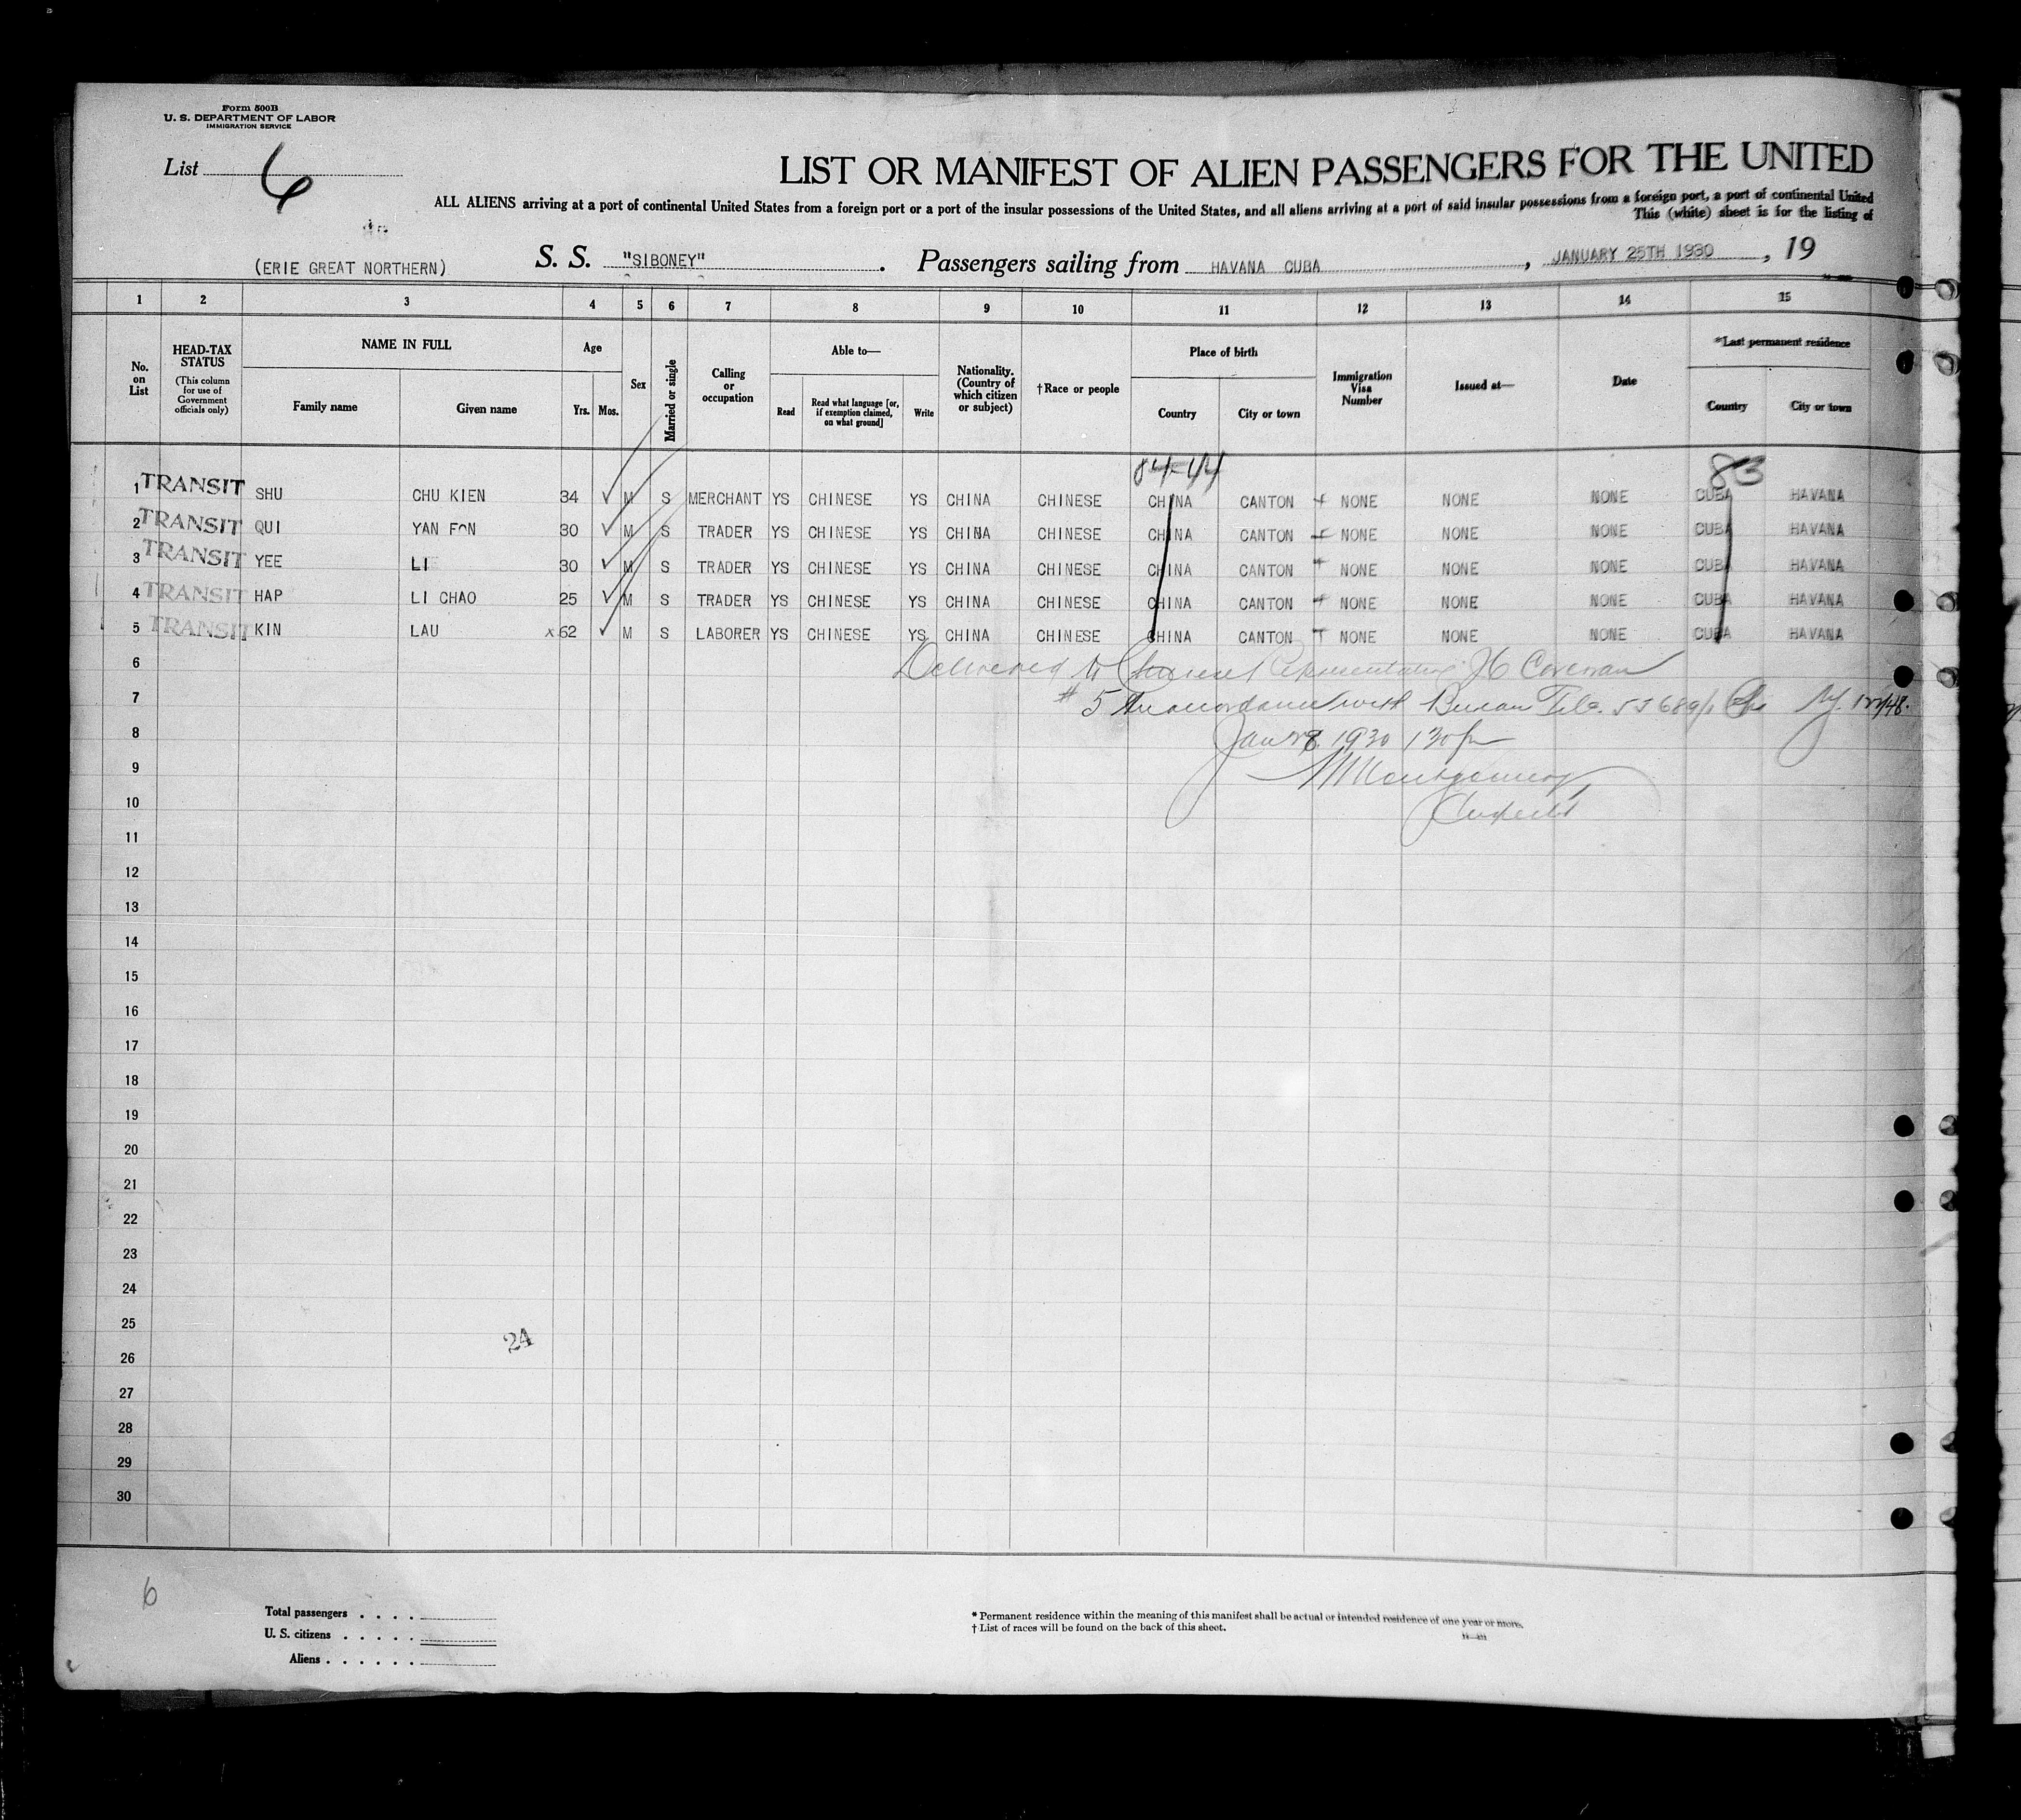 Form 500B
U. S. DEPARTMENT OF LABOR
IMMIGRATION SERVICE
List 6
LIST OR MANIFEST OF ALIEN PASSENGERS FOR THE UNITED
ALL ALIENS arriving at a port of continental United States from a foreign port or a port of the insular possessions of the United States, and all aliens arriving at a port of said insular possessions from a foreign port, a port of continental United
This (white) sheet is for the listing of
(ERIE GREAT NORTHERN) S. S. "SIBONEY" . Passengers sailing from HAVANA CUBA , JANUARY 25TH 1930 , 19
1 2 3 4 5 6 7 8 9 10 11 12 13 14 15
No. on List
HEAD-TAX STATUS (This column for use of Government officials only)
NAME IN FULL
Family name Given name
Age
Yrs. Mos.
Sex
Married or single
Calling or occupation
Able to—
Read Read what language [or, if exemption claimed, on what ground] Write
Nationality. (Country of which citizen or subject)
†Race or people
Place of birth
Country City or town
Immigration Visa Number
Issued at—
Date
*Last permanent residence
Country City or town
84-44 83
1 TRANSIT SHU CHU KIEN 34 M S MERCHANT YS CHINESE YS CHINA CHINESE CHINA CANTON NONE NONE NONE CUBA HAVANA
2 TRANSIT QUI YAN FON 30 M S TRADER YS CHINESE YS CHINA CHINESE CHINA CANTON NONE NONE NONE CUBA HAVANA
3 TRANSIT YEE LI 30 M S TRADER YS CHINESE YS CHINA CHINESE CHINA CANTON NONE NONE NONE CUBA HAVANA
4 TRANSIT HAP LI CHAO 25 M S TRADER YS CHINESE YS CHINA CHINESE CHINA CANTON NONE NONE NONE CUBA HAVANA
5 TRANSIT KIN LAU x 62 M S LABORER YS CHINESE YS CHINA CHINESE CHINA CANTON NONE NONE NONE CUBA HAVANA
6 Delivered to Representative
7 # 5 In accordance with Bureau File
8 Jan 28 1930 130 pm
9 Montgomery
10
11
12
13
14
15
16
17
18
19
20
21
22
23
24
25
24
26
27
28
29
30
6
Total passengers . . . .
U. S. citizens . . . . .
Aliens . . . . . .
* Permanent residence within the meaning of this manifest shall be actual or intended residence of one year or more.
† List of races will be found on the back of this sheet.